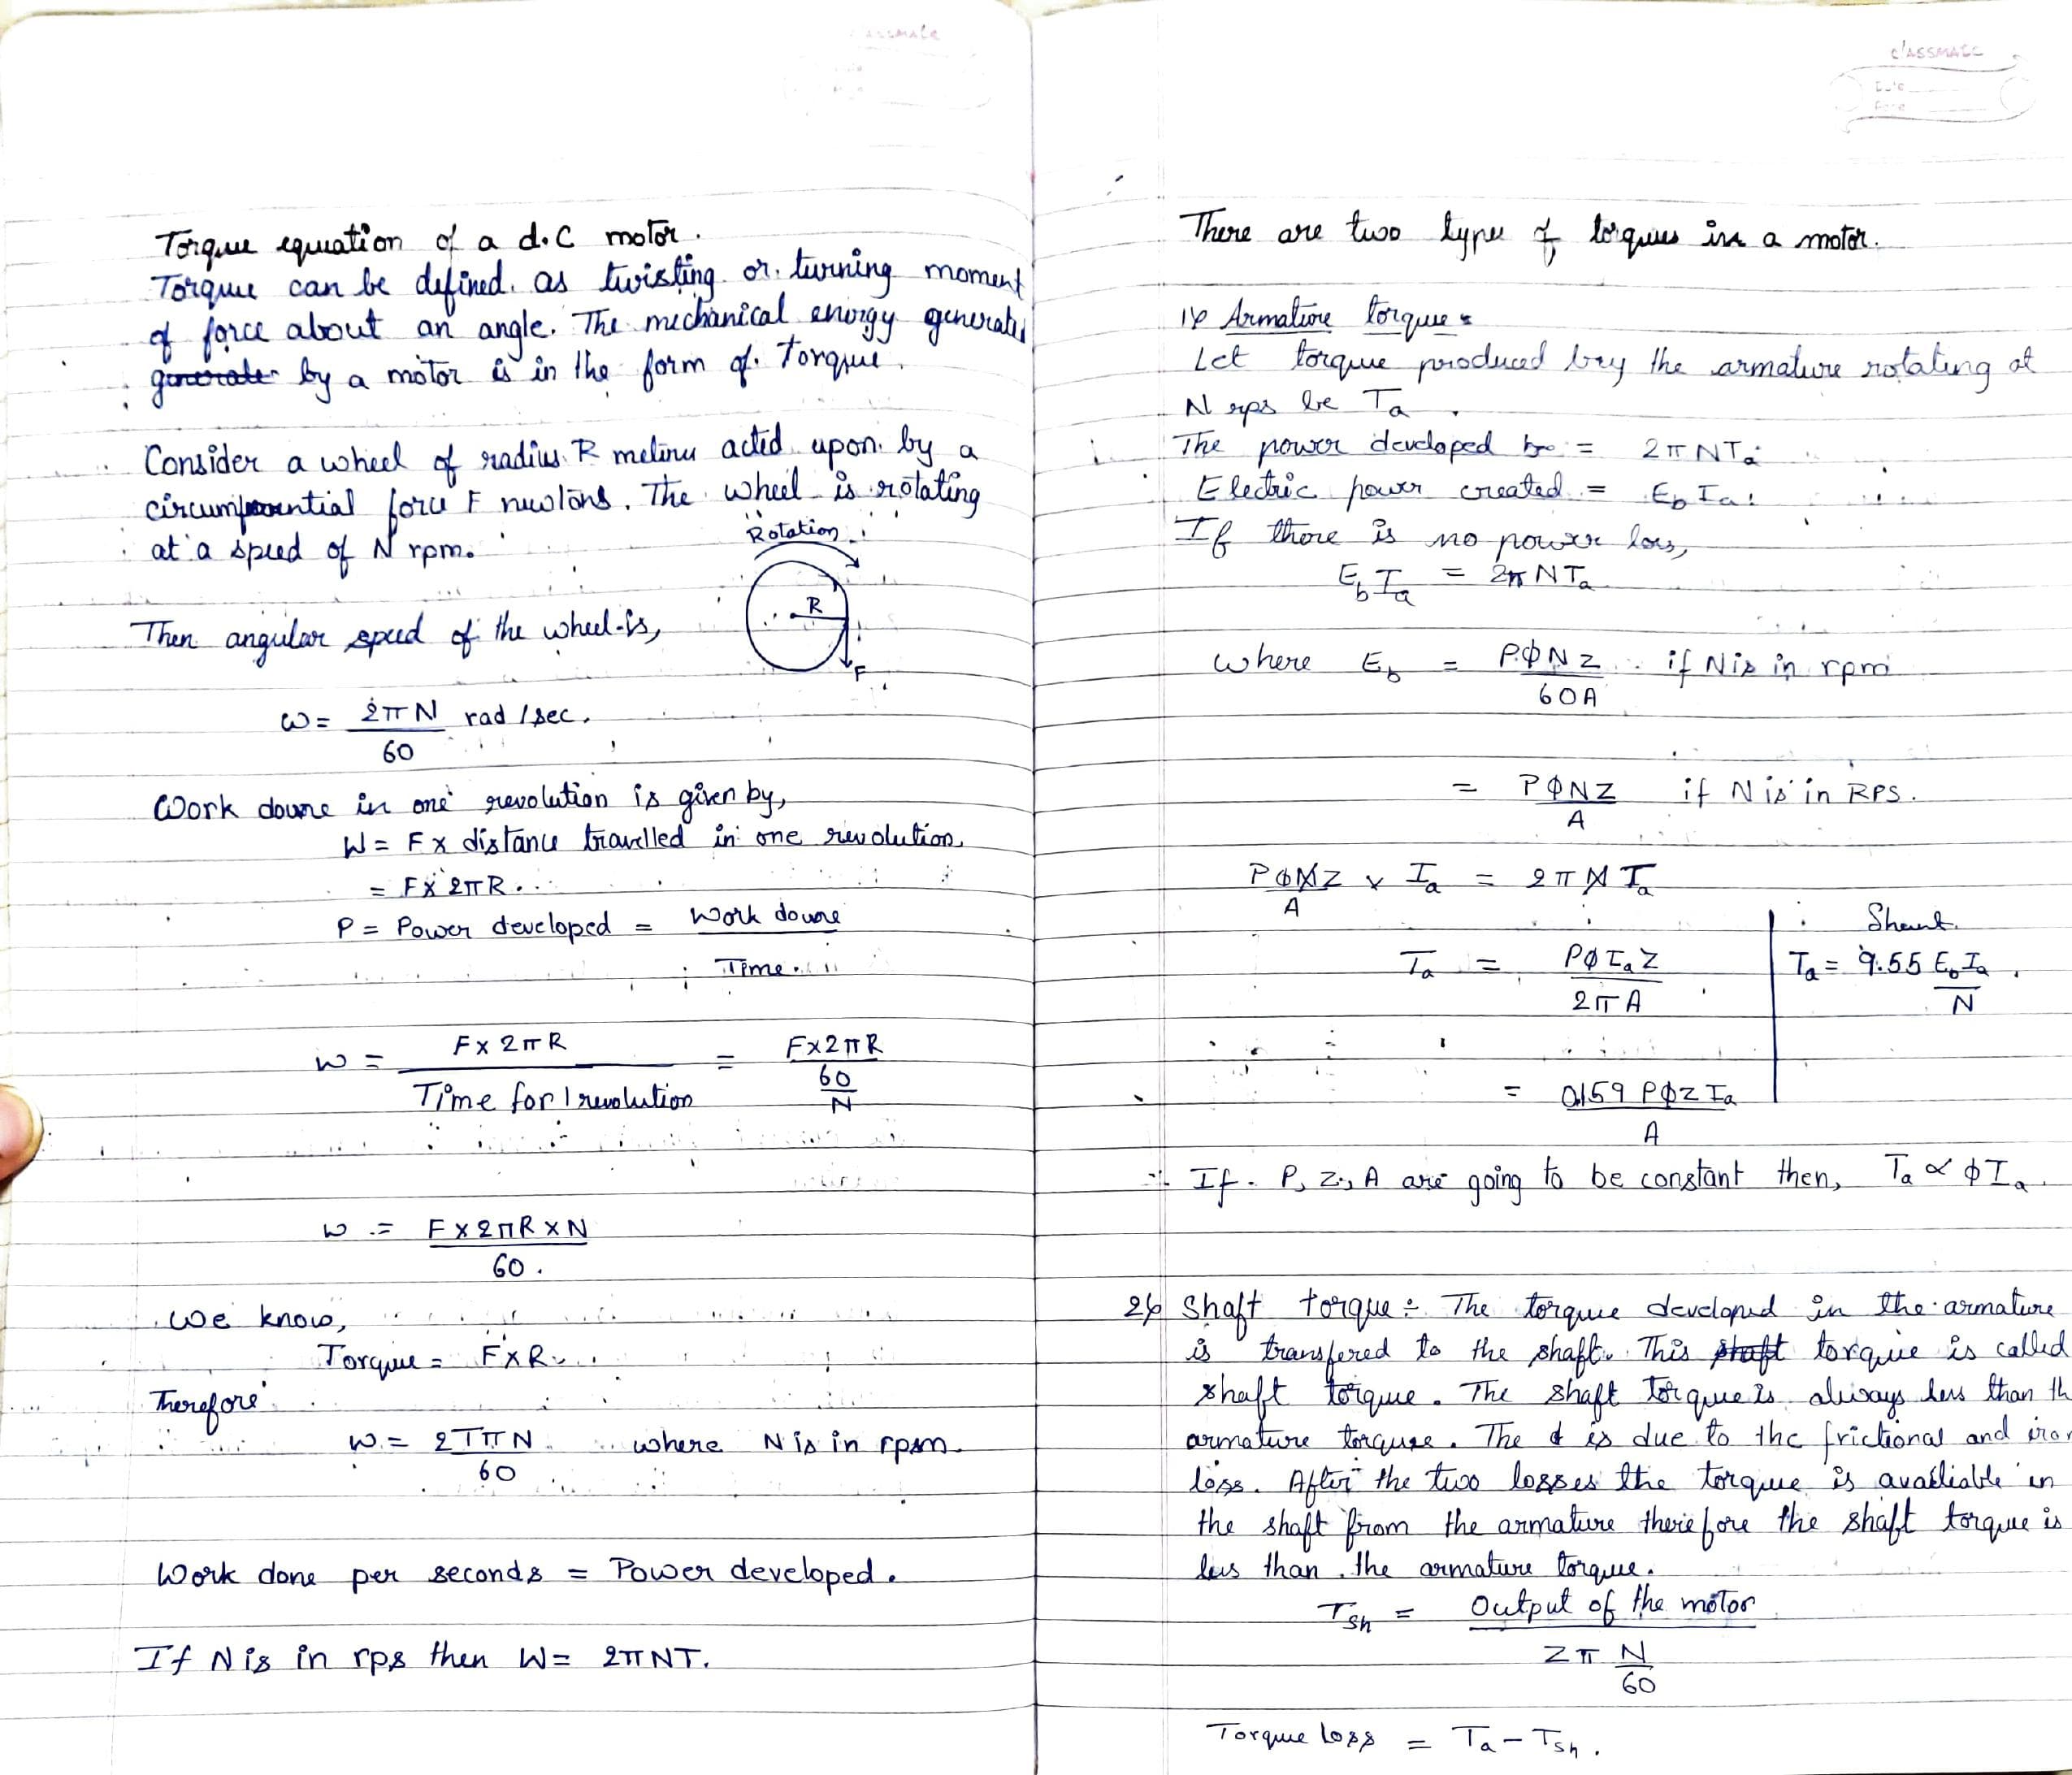 classmate
Torque equation of a d.c motor.
Torque can be defined as twisting or turning moment
of force about an angle. The mechanical energy generated
generates by a motor is in the form of Torque.
Consider a wheel of radius R metres acted upon by a
circumferential force F newtons. The wheel is rotating
at a speed of N rpm.
Rotation
R
F
Then angular speed of the wheel is,
ω = 2πN rad/sec.
60
Work doune in one revolution is given by,
W = F x distance travelled in one revolution.
= F x 2πR.
P = Power developed = Work doune
Time.
W = F x 2πR = F x 2πR
Time for 1 revolution 60
N
W = F x 2πR x N
60.
We know,
Torque = F x R.
Therefore
W = 2TπN where N is in rpm.
60
Work done per seconds = Power developed.
If N is in rps then W = 2πNT.
classmate
Date
Page
There are two types of torques in a motor.
1) Armature torque :
Let torque produced by the armature rotating at
N rps be Ta.
The power developed = 2πNTa
Electric power created = EbIa.
If there is no power loss,
EbIa = 2πNTa
where Eb = PΦNZ if N is in rpm
60A
= PΦNZ if N is in RPS.
A
PΦNZ x Ia = 2πNTa
A
Ta = PΦIaZ
2πA
= 0.159 PΦZIa
A
Shunt
Ta = 9.55 EbIa
N
∴ If P, Z, A are going to be constant then, Ta ∝ ΦIa.
2) Shaft torque :- The torque developed in the armature
is transfered to the shaft. This shaft torque is called
shaft torque. The shaft torque is always less than th
armature torque. The is due to the frictional and iron
loss. After the two losses the torque is availiable in
the shaft from the armature therefore the shaft torque is
less than the armature torque.
Tsh = Output of the motor
2π N
60
Torque loss = Ta - Tsh.